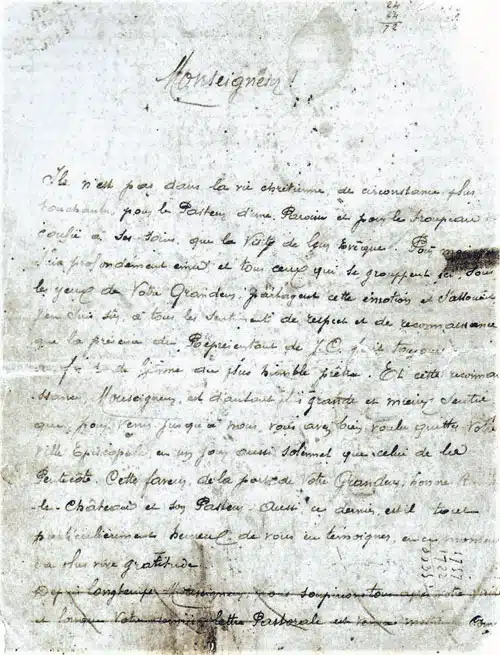 24
24
72
Monseigneur !
Il n'est pas dans la vie chrétienne, de circonstance plus
touchante, pour le Pasteur d'une Paroisse et pour le troupeau
confié à ses soins, que la Visite de leur Evêque. Pour
profondément ému, et tous ceux qui se groupent ici, sous
les yeux de Votre Grandeur, partagent cette émotion et s'associent
j'en suis sûr, à tous les sentiments de respect et de reconnaissance
que la présence du Représentant de J. C. fait toujours
du plus humble prêtre. Et cette reconnais
ssance, Monseigneur, est d'autant plus grande et mieux sentie
que, pour venir jusqu'à nous, vous avez bien voulu quitter Votre
Ville Episcopale, en un jour aussi solennel que celui de la
Pentecôte. Cette faveur, de la part de Votre Grandeur, honore
le-Château et son Pasteur. Aussi ce dernier, est-il tout
particulièrement heureux de vous en témoigner, en ce moment
sa plus vive gratitude.
Depuis longtemps, Monseigneur, nous soupirions tous après votre
et lorsque Votre dernière lettre Pastorale est venue